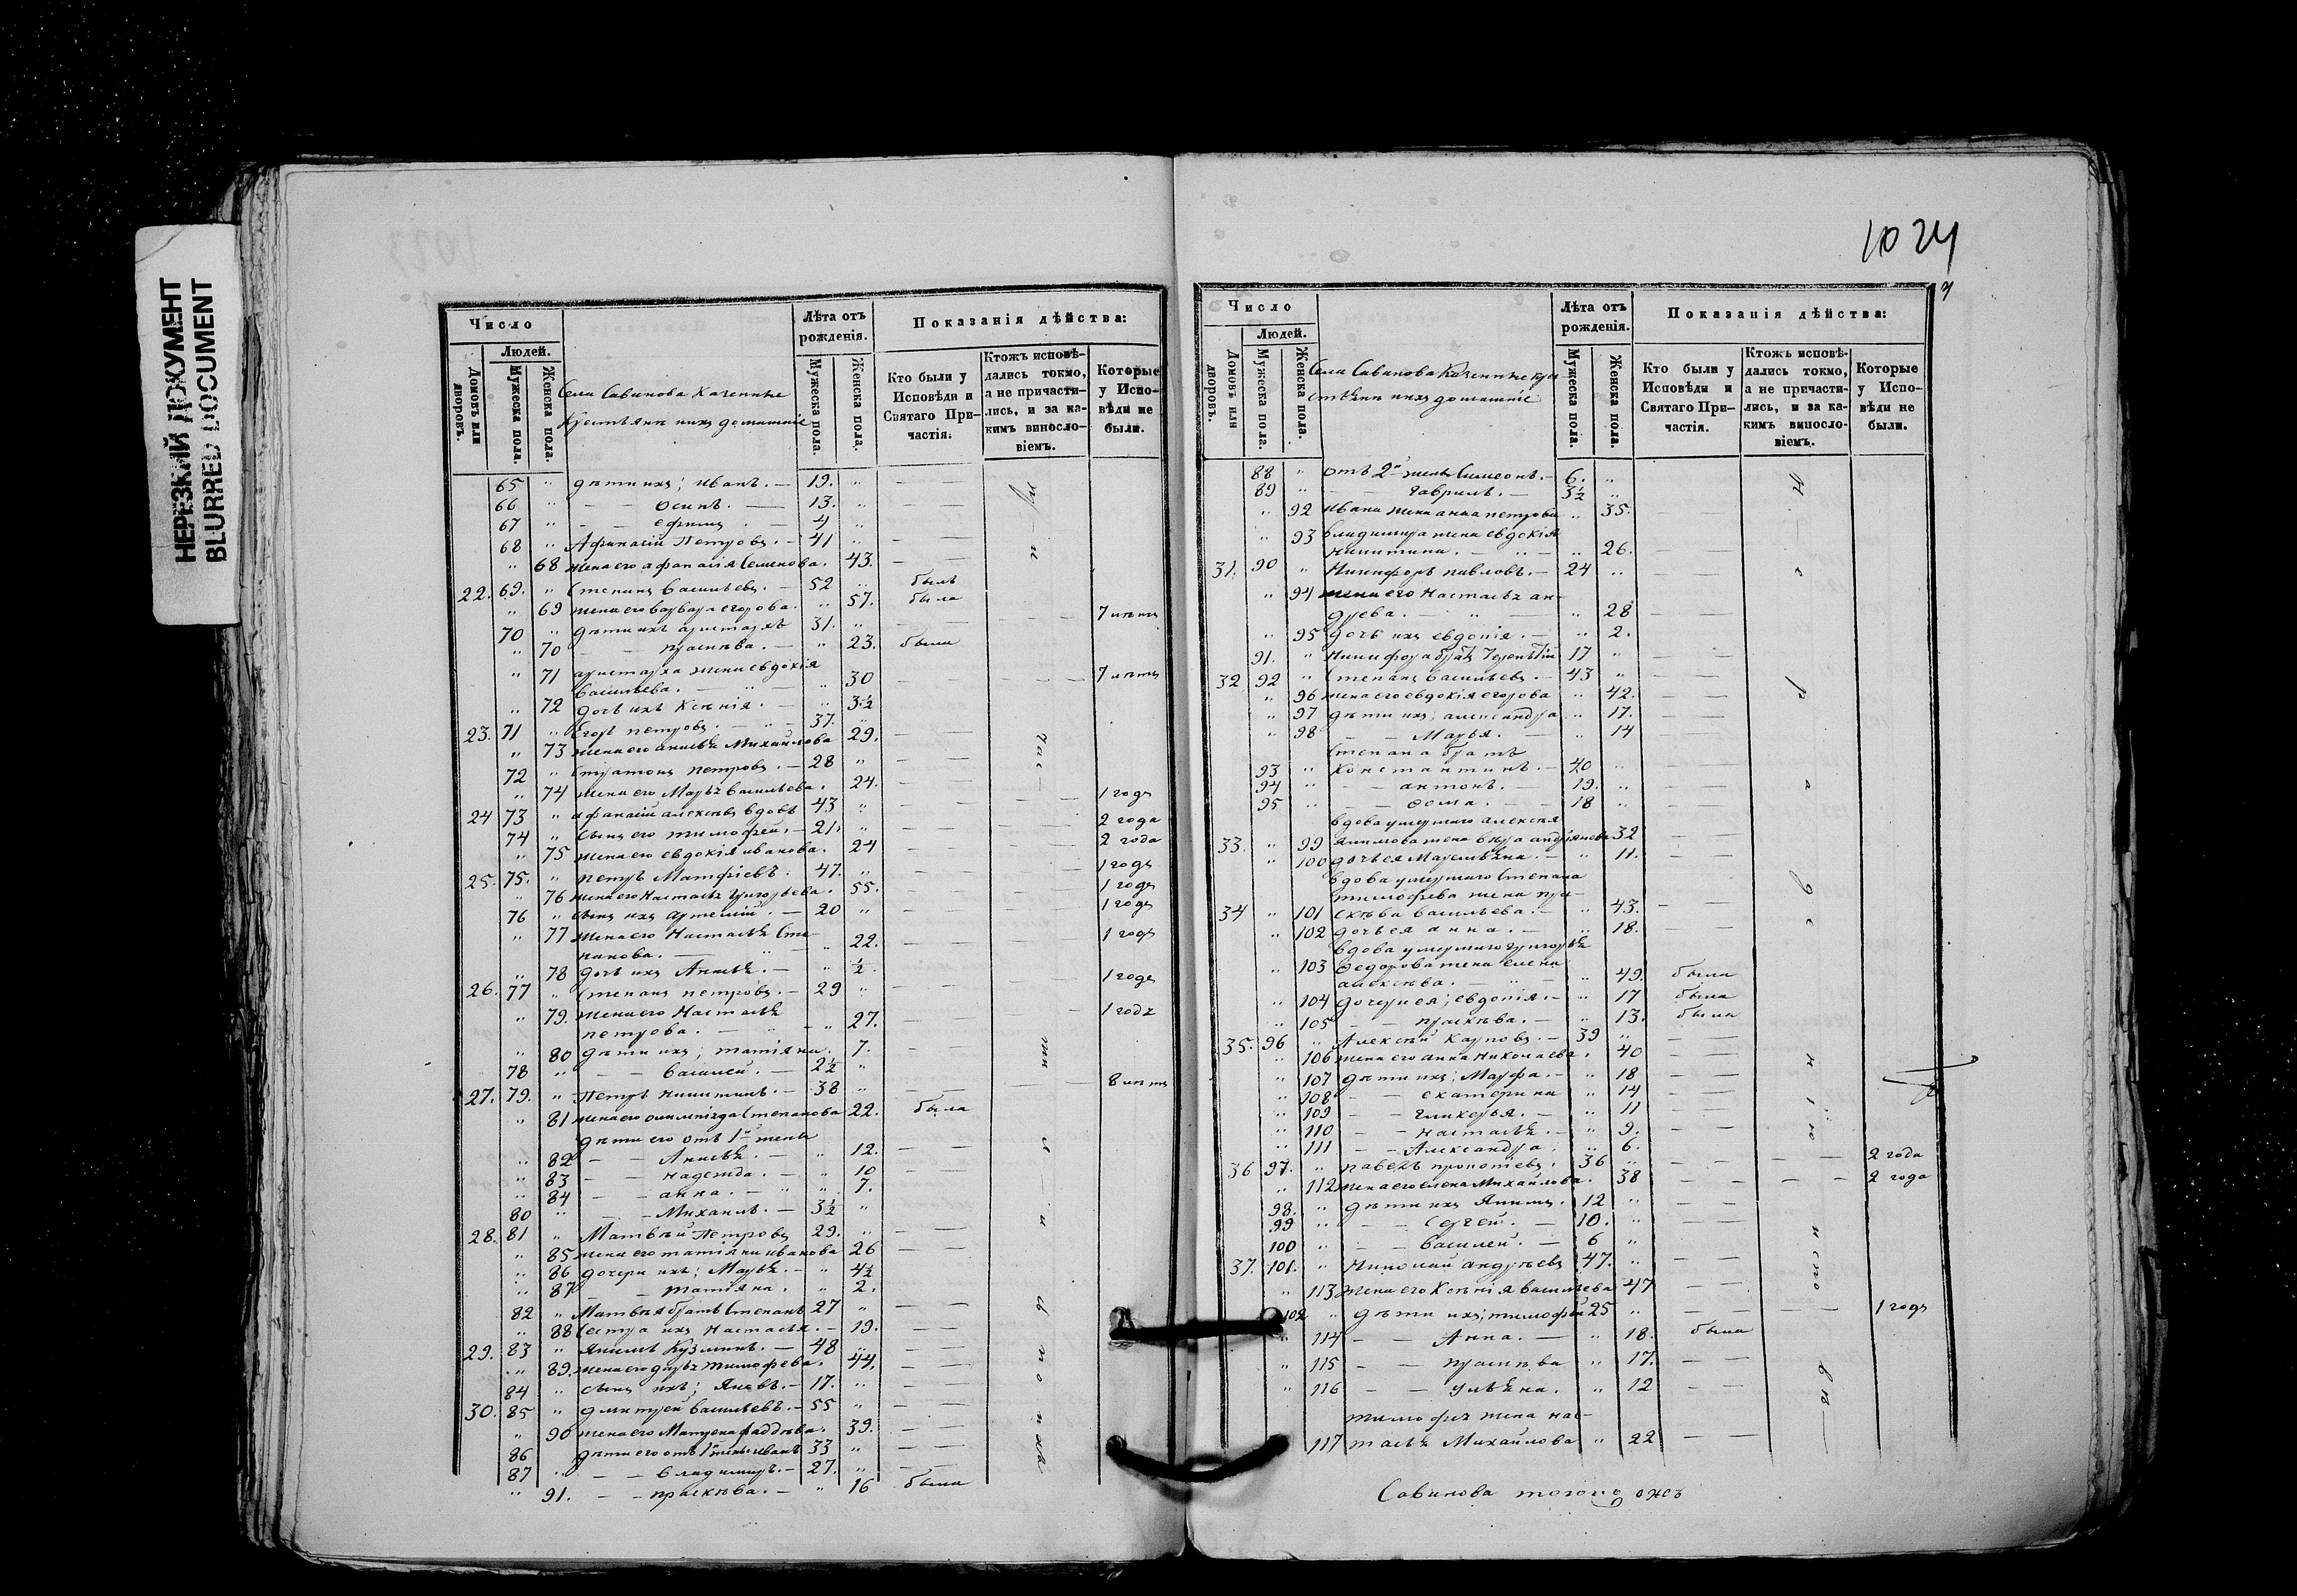 НЕРЕЗКИЙ ДОКУМЕНТ
BLURRED DOCUMENT
Число
Людей.
Домовъ или дворовъ.
Мужеска пола.
Женска пола.
Села Савинова Казенные
Крестьяне и ихъ домашніе
Лѣта отъ рожденія.
Мужеска пола.
Женска пола.
Показанія дѣйства:
Кто были у Исповѣди и Святаго Причастія.
Ктожъ исповѣдались токмо, а не причастились, и за какимъ винословіемъ.
Которые у Исповѣди не были.
65 " дѣти ихъ; иванъ. 19. "
66 " осипъ. 13. "
67 " ефимъ 4 "
68 " Афанасій Петровъ. 41 "
" 68 жена его афанасія Семенова. " 43.
22. 69. " Степанъ Васильевъ. 52 " былъ
" 69 жена его варвара егорова. " 57. была
70 " дѣти ихъ аристархъ 31. " 7 лѣтъ
" 70 прасковья. " 23. была
" 71 аристарха жена евдокія
васильева. " 30 7 лѣтъ
" 72 дочь ихъ Ксенія. " 3½
23. 71 " Егоръ петровъ. 37. "
" 73 жена его анисья Михайлова 29.
72 " Стратонъ петровъ. 28 "
" 74 жена его Марья васильева. 24.
24 73 " афанасій алексѣевъ вдовъ 43 " 1 годъ
74 " сынъ его тимофей. 21. " 2 года
" 75 жена его евдокія иванова. 24 2 года
25. 75. " петръ Матфіевъ. 47. " 1 годъ
" 76 жена его Настасья григорьева. 55. 1 годъ
76 " сынъ ихъ артемій. 20 " 1 годъ
" 77 жена его Настасья Сте-
панова. " 22. 1 годъ
" 78 дочь ихъ Анисья. " ½.
26. 77 " Степанъ петровъ. 29 " 1 годъ
" 79. жена его Настасья
петрова. " 27. 1 годъ
" 80 дѣти ихъ; татіяна. 7.
78 " василей. 2½ "
27. 79. " Петръ никитинъ. 38 " 8 лѣтъ
" 81 жена его олимпіада Степанова 22. была
дѣти его отъ 1й жены
" 82 Анисья. " 12.
" 83 надежда. " 10
" 84 анна. " 7.
80 " Михаилъ. 3½ "
28. 81 " Матвѣй Петровъ 29. "
" 85 жена его татіяна иванова 26
" 86 дочери ихъ; Марья. " 4½
" 87 татіяна. " 2.
82 " Матвѣя братъ Степанъ 27 "
" 88 Сестра ихъ Настасья. 19.
29. 83 " Якимъ Кузминъ. 48 "
" 89. жена его дарья тимофева. 44.
84 " сынъ ихъ; Яковъ. 17. "
30. 85 " дмитрей васильевъ. 55 "
" 90 жена его Матрена фаддѣева. 39.
86 дѣти его отъ 1й жены иванъ 33 "
87 " владимиръ. 27. "
" 91. прасковья. " 16 была
1024
Число
Людей.
Домовъ или дворовъ.
Мужеска пола.
Женска пола.
Села Савинова Казенные кре-
стьяне и ихъ домашніе
Лѣта отъ рожденія.
Мужеска пола.
Женска пола.
Показанія дѣйства:
Кто были у Исповѣди и Святаго Причастія.
Ктожъ исповѣдались токмо, а не причастились, и за какимъ винословіемъ.
Которые у Исповѣди не были.
88 " отъ 2й жены Симеонъ. 6. "
89 " гаврилъ. 3½ "
" 92 ивана жена анна петрова " 35.
" 93 владимира жена евдокія
никитина. " 26.
31. 90 " Никифоръ павловъ. 24 "
" 94 жена его Настасья ан-
дреева. " 28
" 95 дочь ихъ евдокія. " 2.
91. " никифора братъ Терентій 17 "
32 92 " Степанъ васильевъ. 43 "
" 96 жена его евдокія егорова " 42.
" 97 дѣти ихъ; александра " 17.
" 98 Марья. " 14
Степана братъ
93 " Константинъ. 40 "
94 " антонъ. 19. "
95 " фома. 18 "
вдова умершаго алексѣя
33. " 99 якимова жена вѣра андріянова 32
" 100 дочь ея Маремьяна. " 11.
вдова умершаго Степана
тимофева жена пра-
34 " 101 сковья васильева. " 43.
" 102 дочь ея анна. " 18.
вдова умершаго григорья
" 103 Федорова жена елена
алексѣева. " 49. была
" 104 дочери ея; евдокія. " 17 была
" 105 прасковья. " 13. была
35. 96 " Алексѣй Карповъ. 39 "
" 106 жена его анна николаева. 40
" 107 дѣти ихъ; Марфа. " 18
" 108 екатерина " 14
" 109 гликерья. " 11
" 110 настасья. " 9.
" 111 Александра. " 6.
36 97. " павелъ прокопіевъ. 36 " 2 года
" 112 жена его елена Михайлова. 38 2 года
98. " дѣти ихъ Якимъ. 12 "
99 " Сергей. 10. "
100 " василей. 6 "
37. 101. " Николай андрѣевъ 47. "
" 113 жена его Ксенія васильева 47
102 " дѣти ихъ; тимофей 25 " 1 годъ
" 114 Анна. " 18. была
" 115 прасковья " 17.
" 116 ульяна. " 12
тимофея жена нас-
117 тасья Михайлова " 22
Савинова тогожъ